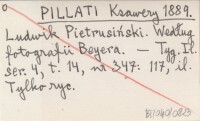 o
PILLATI Ksawery 1889.
Ludwik Pietrusiński. Według
fotografii Beyera. — Tyg. Il.
ser. 4, t. 14, nr 347: 117, il.
Tylko ryc.